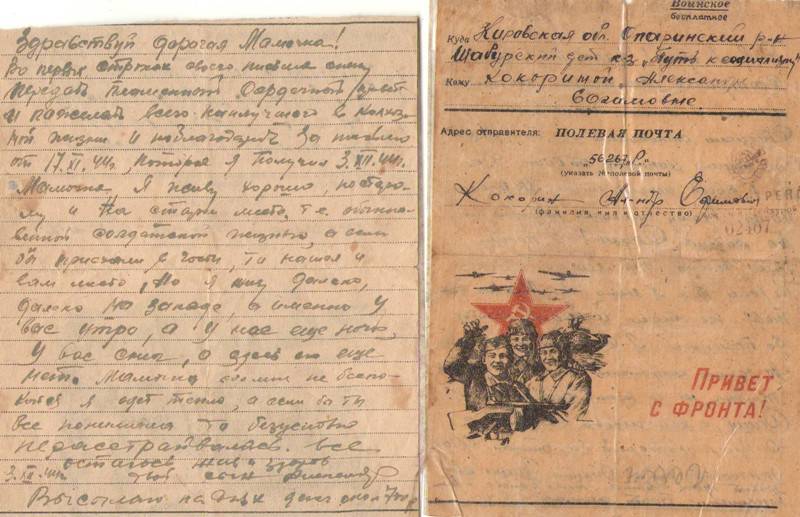 Здравствуй дорогая Мамочка!
Во первых строках своего письма спешу
передать пламенный сердечный привет
и пожелать всего наилучшего в колхоз
ной жизни и поблагодарить за письмо
от 17.XI.44г., которое я получил 3.XII.44г.
Мамочка, я живу хорошо, по старо
му и на старом месте, т.е. обыкно
венной солдатской жизнью, а если
бы приехали в гости, то нашел и
вам место, Но я живу далеко,
далеко на западе, а именно у
вас утро, а у нас еще ночь,
У вас снег, а здесь его еще
нет. Мамочка обо мне не беспо
койся я одет тепло, а если бы ты
все понимала то безусловно
не расстраивалась.
остаюсь жив и здоров
3.XII.44г. твой сын
Высылаю на днях денег
Воинское
бесплатное
Куда Кировская обл. Опаринский р-н
Шабурский с/с к-з "Путь к социализму"
Кому Кокориной Александре
Ефимовне.
Адрес отправителя: ПОЛЕВАЯ ПОЧТА
„56267 Р."
(указать № полевой почты)
Кокорин Ал-ндр Ефимович
(фамилия, имя и отчество)
02407
ПРИВЕТ
С ФРОНТА!